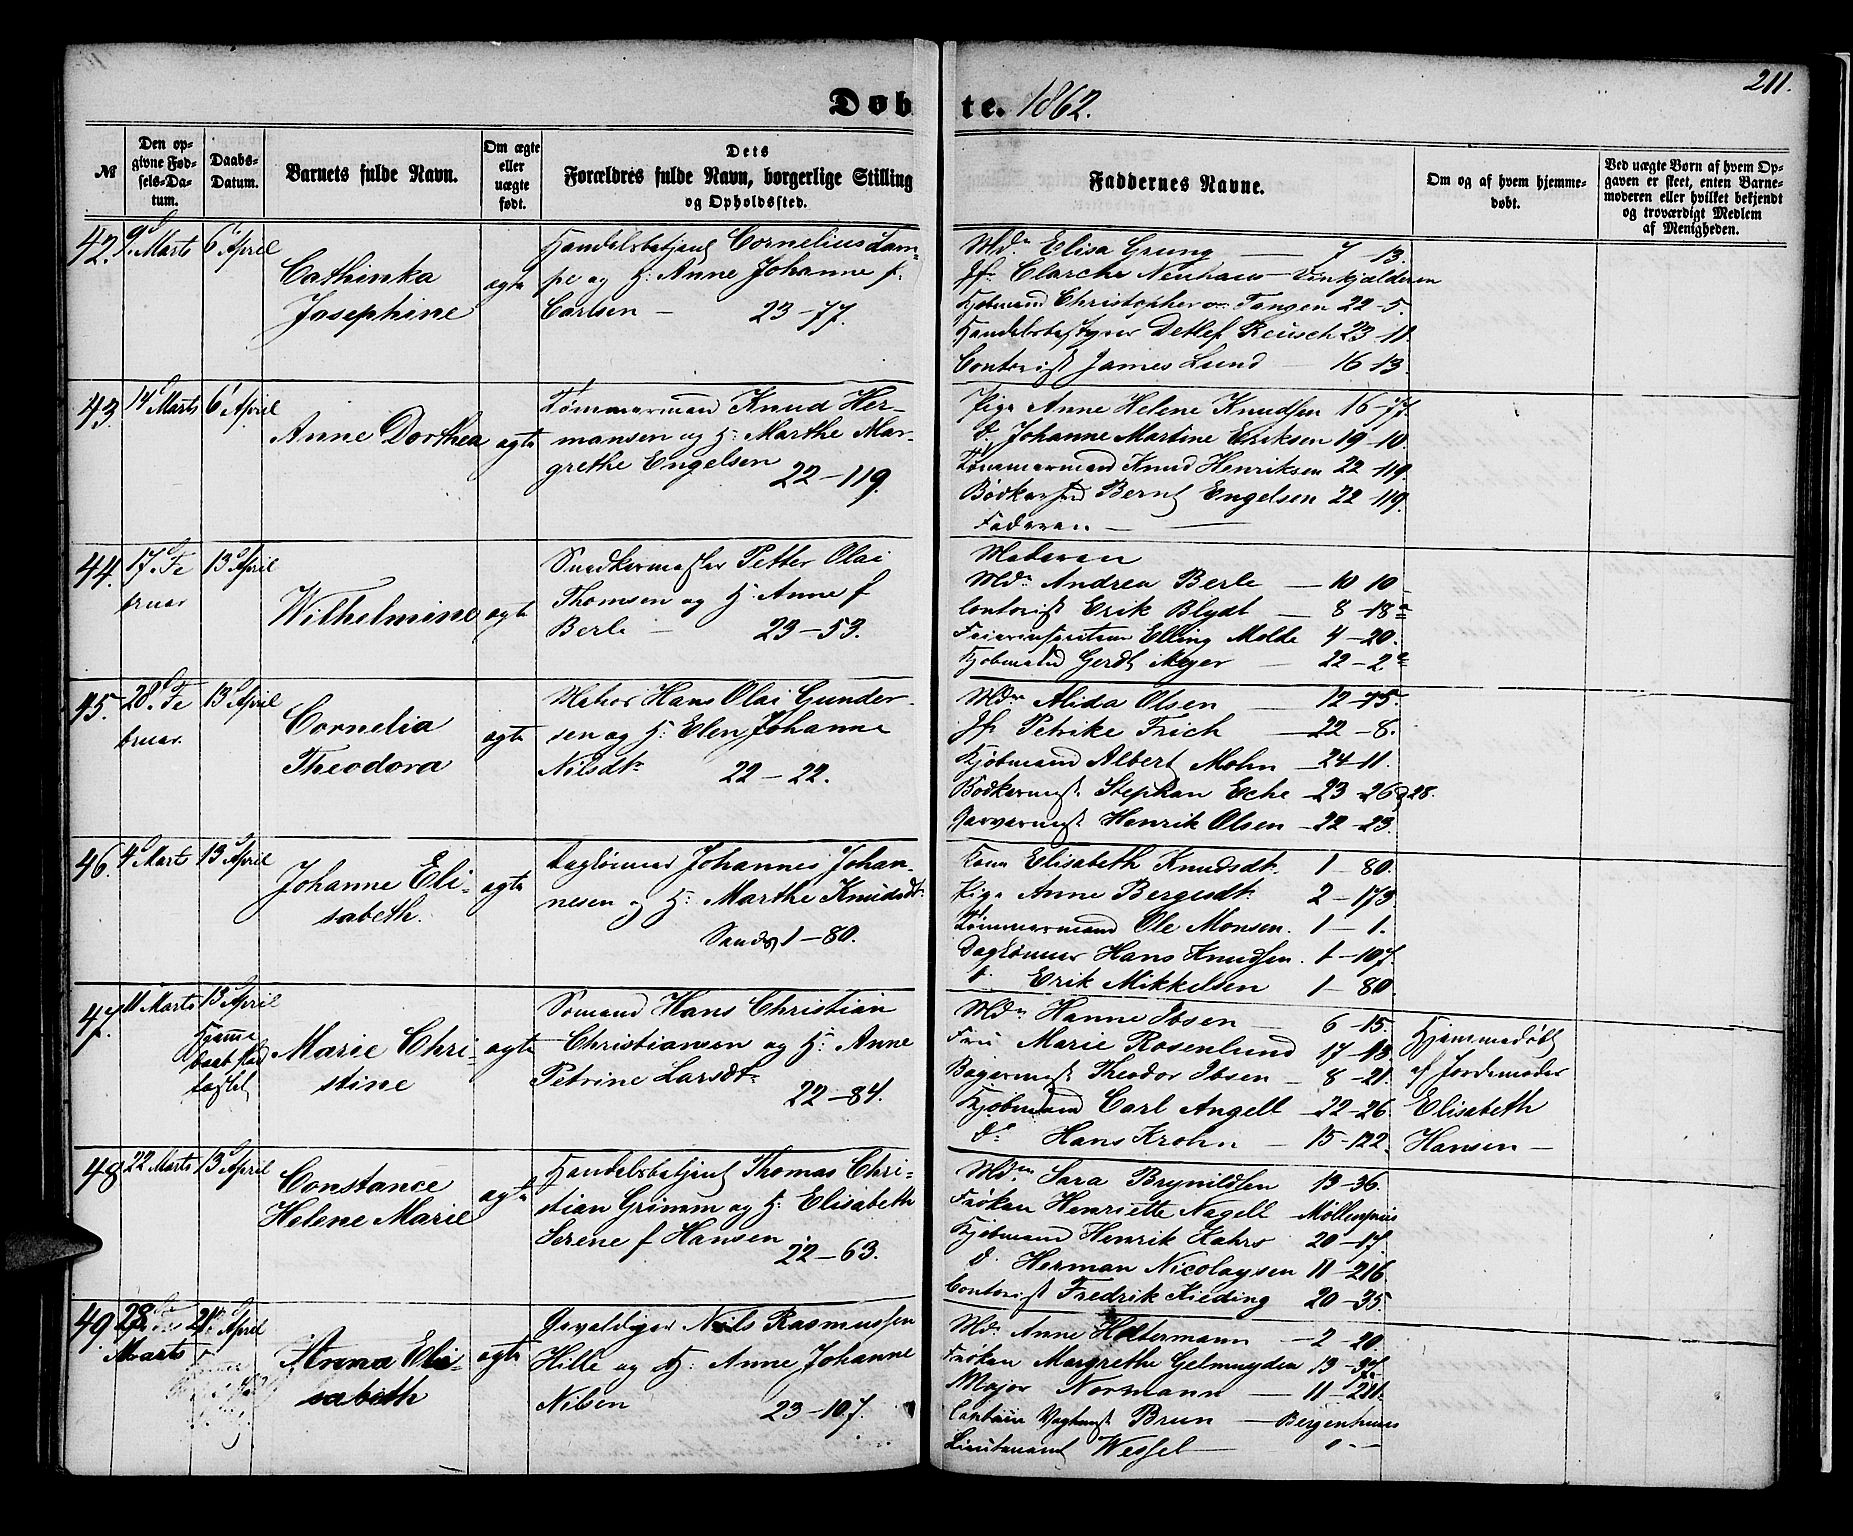 211.
Døbte. 1862.
№
Den opgivne Fødsels-Datum.
Daabs-Datum.
Barnets fulde Navn.
Om ægte eller uægte født.
Dets
Forældres fulde Navn, borgerlige Stilling
og Opholdssted.
Faddernes Navne.
Om og af hvem hjemmedøbt.
Ved uægte Børn af hvem Opgaven er skeet, enten Barnemoderen eller hvilket bekjendt og troværdigt Medlem af Menigheden.
42. 9 Marts 6 April
Cathinka
Josephine
ægte
Handelsbetjent Cornelius Lam-
pe og H: Anne Johanne f.
Carlsen – 23–77.
Mdm Elisa Grung 7–13.
Jfr Clarche Neuhaus – Vinkjælderen
Kjøbmand Christopher Tangen 22–5.
Handelsbestyrer Detlef Reusch 23–11
Contorist James Lund – 16 13.
43. 14 Marts 6 April
Anne Dorthea
ægte
Tømmermand Knud Her-
mansen og H: Marthe Mar-
grethe Engelsen
22–119.
Pige Anne Helene Knudsen 16–77.
d. Johanne Martine Eriksen 19–10.
Tømmermand Knud Henriksen 22–119.
Bødkersvd Bernt Engelsen 22–119.
Faderen –
44. 17 Fe
bruar
13 April
Wilhelmine
ægte
Snedkermester Petter Olai
Thomsen og H: Anne f
Berle – 23–53.
Moderen
Mdm Andrea Berle – 10 10
Contorist Erik Blydt – 8–18a
Elling Molde 4–20.
Kjøbmand Gerdt Meyer – 22–2a
45. 28. Fe
bruar.
13 April
Cornelia
Theodora
ægte
Hans Olai Gunder-
sen og H: Elen Johanne
Nilsdtr 22–22.
Mdm Alida Olsen – 12–75.
Jfr Petrike Frich – 22–8.
Kjøbmand Albert Mohn – 24–11.
Bødkermest. Stephan Eche – 23–26 & 28.
Garvermest Henrik Olsen – 22–23.
46. 4 Marts 13 April
Johanne Eli-
sabeth.
ægte
Daglønner Johannes Johan-
nesen og H: Marthe Knudsdtr
Sands 1–80.
Kone Elisabeth Knudsdtr. 1–80.
Pige Anne Bergesdtr. 2–173
Tømmermand Ole Monsen. 1–1.
Daglønner Hans Knudsen. 1–107.
d. Erik Mikkelsen 1–80.
47. 11 Marts 13 April
Hjemme
daab stad
fæstet
Marie Chri-
stine
ægte
Sømand Hans Christian
Christiansen og H: Anne
Petrine Larsdtr
22–84.
Mdm Hanne Ibsen – 6–15.
Fru Marie Rosenlund 17–13
Bagermest. Theodor Ibsen – 8–21.
Kjøbmand Carl Angell – 22–26.
do Hans Krohn – 15–122.
Hjemmedøbt
af Jordemoder
Elisabeth
Hansen –
48 22 Marts 13 April
Constance
Helene Marie
ægte
Handelsbetjent Thomas Chri-
stian Grimm og H: Elisabeth
Serene f Hansen
22–63.
Mdm. Sara Brynildsen 13–36.
Frøken Henriette Nagell – Møllenpriis
Kjøbmand Henrik Kahrs 20–17.
d. Herman Nicolaysen 11–216
Contorist Fredrik Kieding 20–35.
49. 28
Marts
21 April
Anna Eli-
sabeth
ægte
Gevaldiger Nils Rasmussen
Hille og H: Anne Johanne
Nilsen 23–107.
Md: Anne Holtermann – 2–20.
Frøken Margrethe Gelmuyden 13–37.
Major Normann – 11–211.
Captain Brun – Bergenhuus
Lieutenant Wessel –